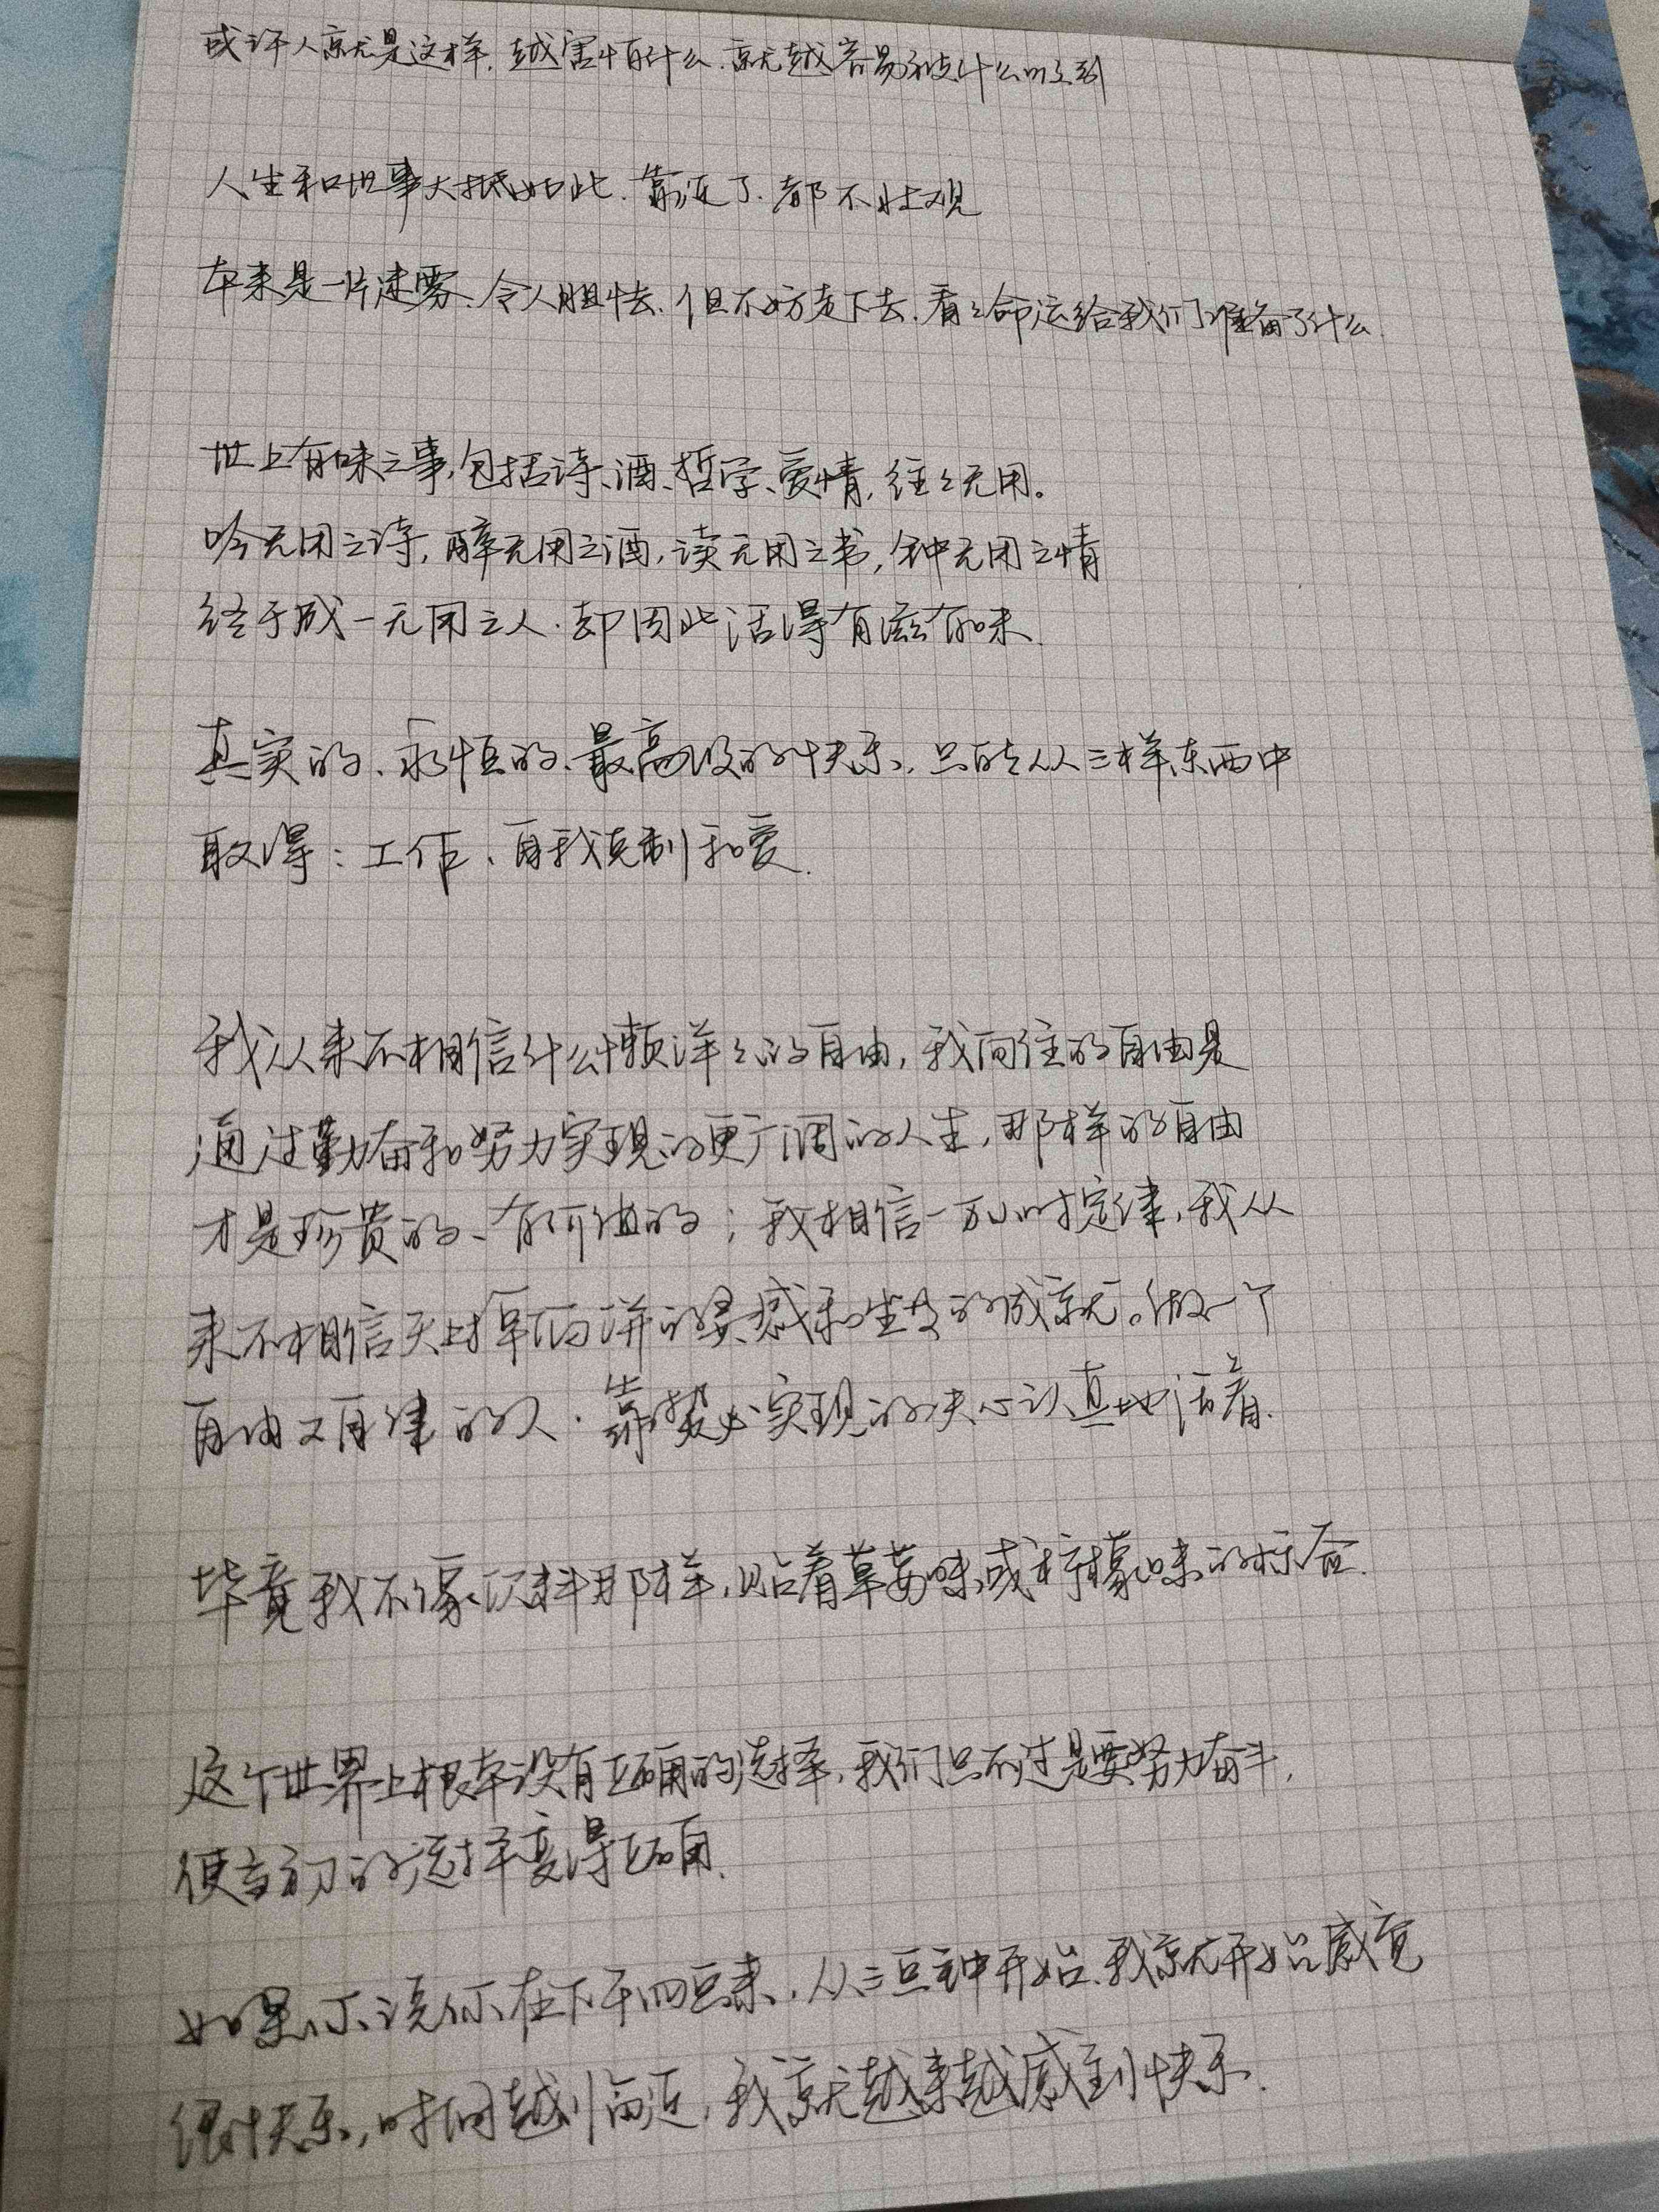 或许人就是这样.越害怕什么.就越容易被什么吓到
人生和世事大抵如此.靠近了.都不壮观
本来是一片迷雾.令人胆怯.但不妨走下去.看々命运给我们准备了什么.
世上有味之事,包括诗、酒、哲学、爱情,往々无用。
吟无用之诗,醉无用之酒,读无用之书,钟无用之情
终于成一无用之人.却因此活得有滋有味.
真实的、永恒的、最高级的快乐.只能从三样东西中
取得:工作、自我克制和爱.
我从来不相信什么懒洋々的自由,我向往的自由是
通过勤奋和努力实现的更广阔的人生,那样的自由
才是珍贵的、有价值的;我相信一万小时定律,我从
来不相信天上掉馅饼的灵感和坐等的成就。做一个
自由又自律的人.靠势必实现的决心认真地活着.
毕竟我不像饮料那样,贴着草莓味或柠檬味的标签.
这个世界上根本没有正确的选择,我们只不过是要努力奋斗,
使当初的选择变得正确.
如果你说你在下午四点来,从三点钟开始.我就开始感觉
很快乐,时间越临近,我就越来越感到快乐.